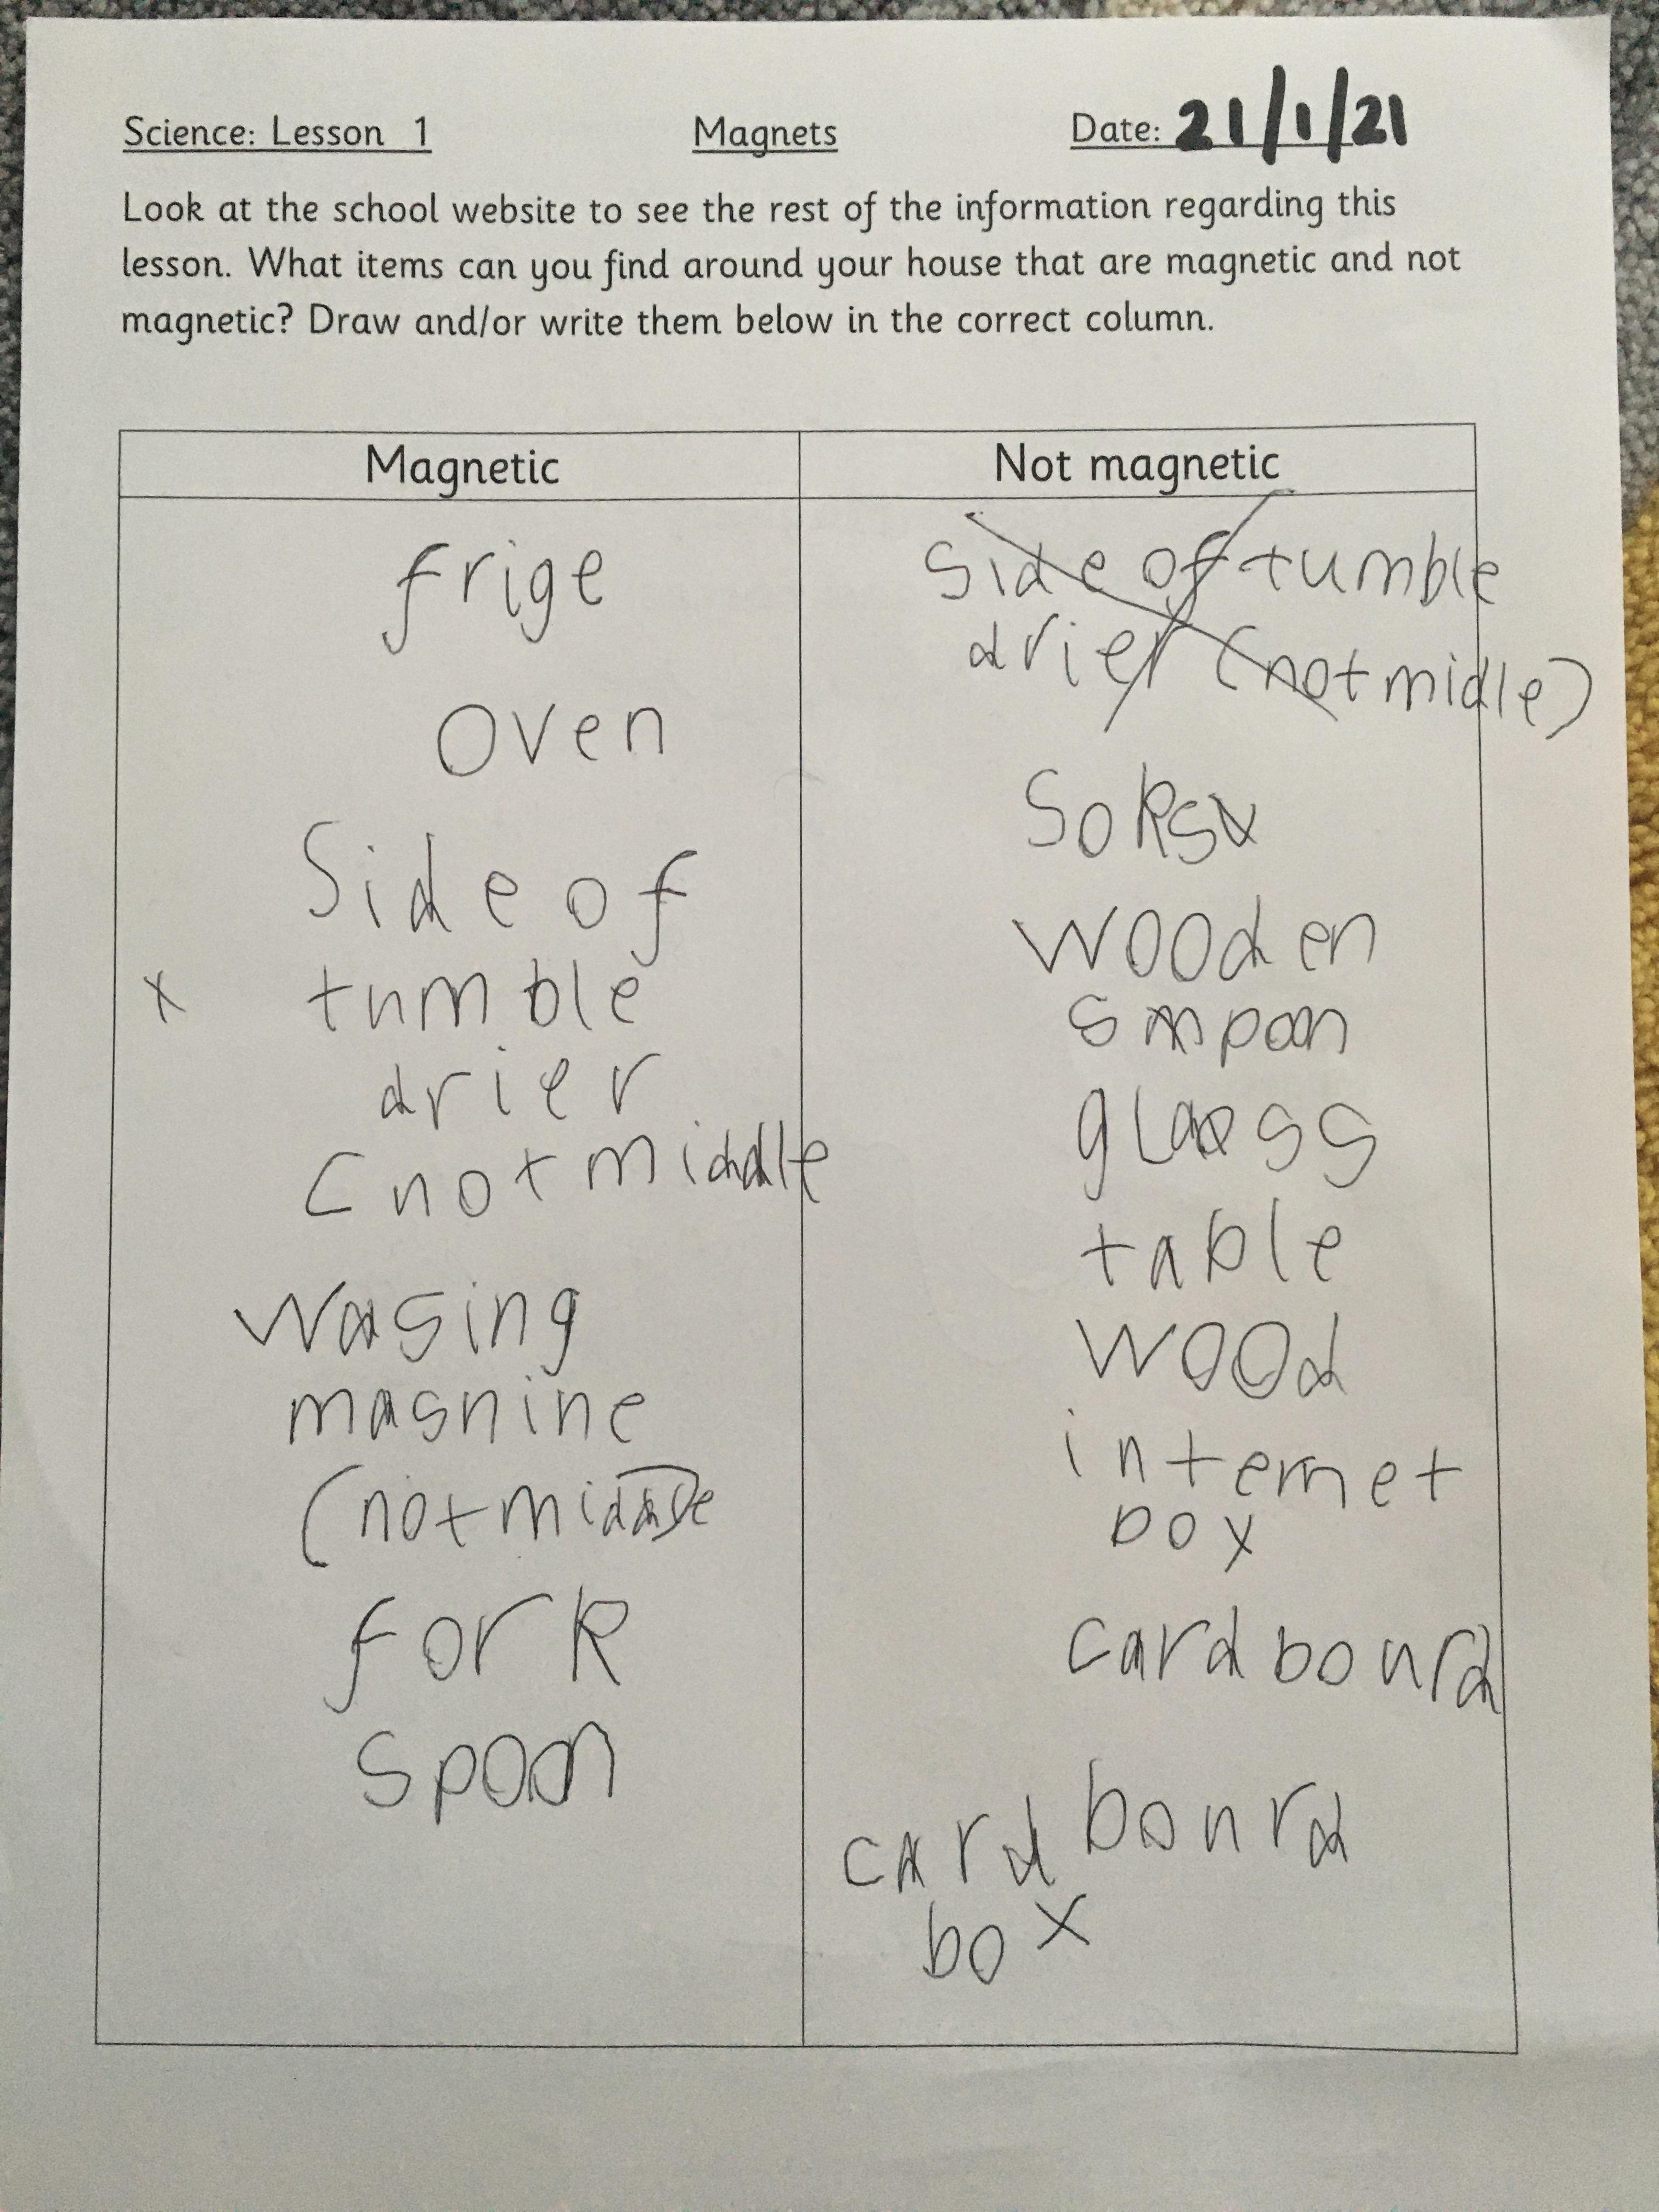 Science: Lesson 1 Magnets Date: 21/1/21
Look at the school website to see the rest of the information regarding this
lesson. What items can you find around your house that are magnetic and not
magnetic? Draw and/or write them below in the correct column.
Magnetic
frige
oven
Side of
x tumble
drier
(not middle
wasing
mashine
(not middle
fork
spoon
Not magnetic
side of tumble
drier (not midle)
Soks
wooden
smpoon
glass
table
wood
internet
box
cardbourd
cardbourd
box